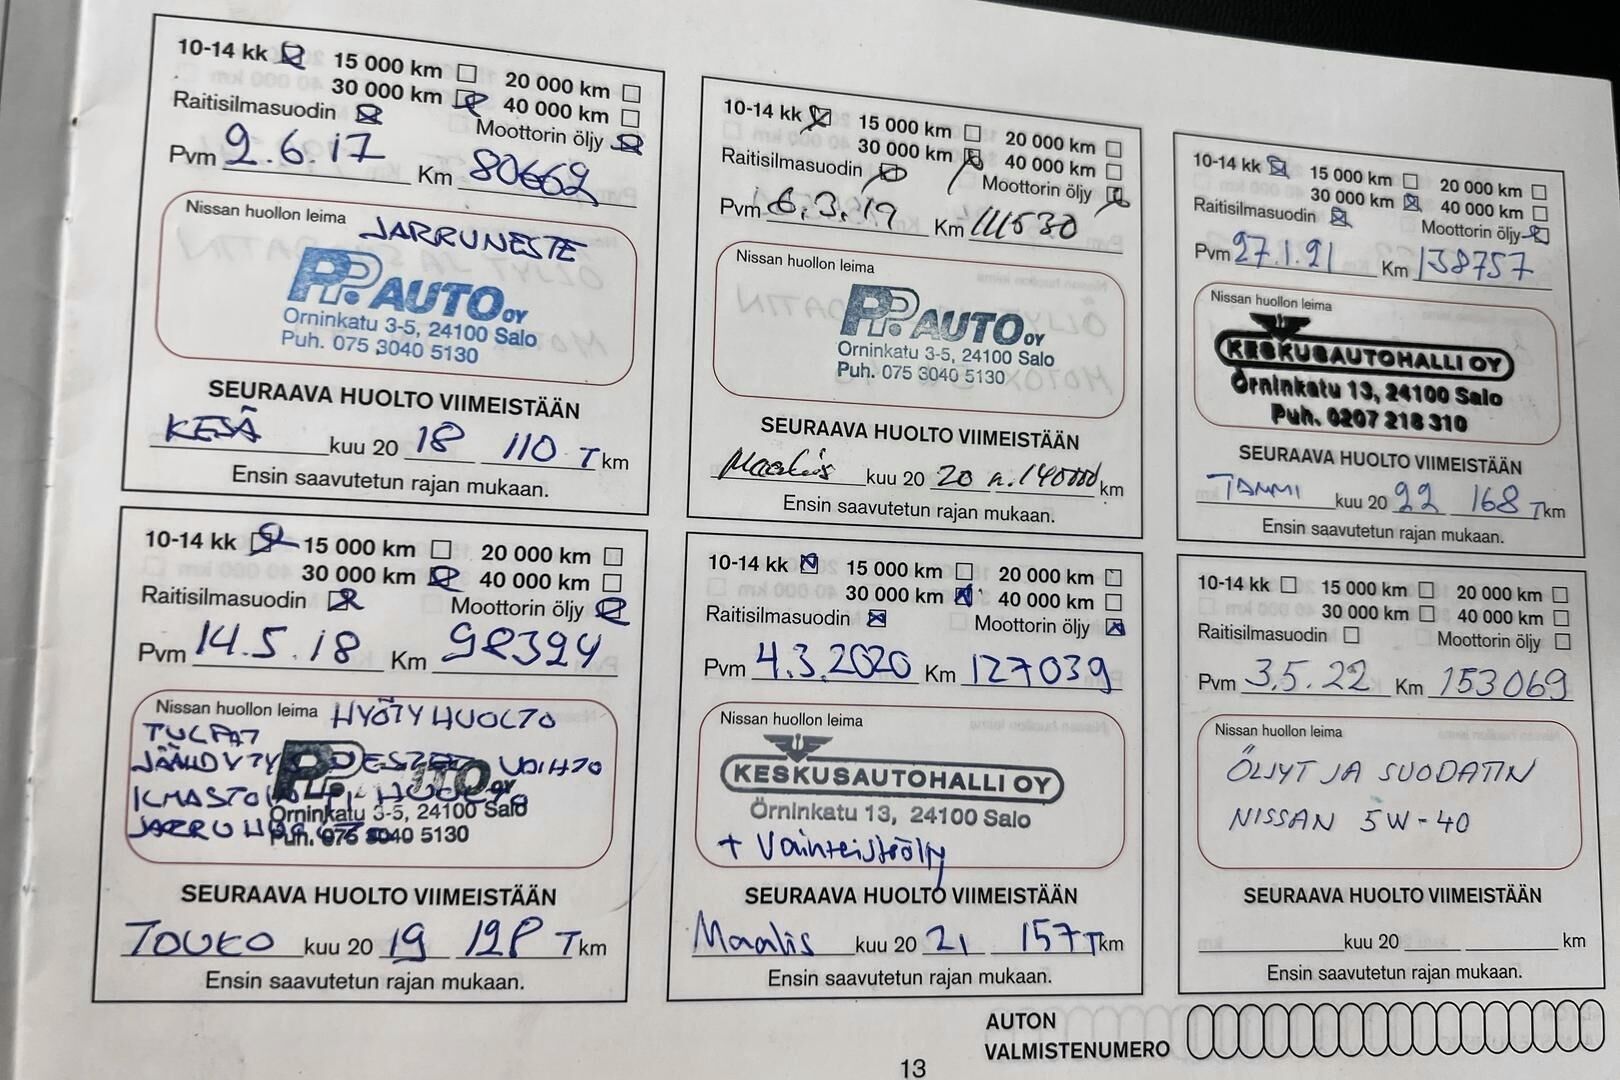 10-14 kk 15 000 km 20 000 km
30 000 km 40 000 km
Raitisilmasuodin Moottorin öljy
Pvm 2.6.17 Km 80662
Nissan huollon leima JARRUNESTE
PP AUTO OY
Örninkatu 3-5, 24100 Salo
Puh. 075 3040 5130
SEURAAVA HUOLTO VIIMEISTÄÄN
KESÄ kuu 20 18 110 T km
Ensin saavutetun rajan mukaan.
10-14 kk 15 000 km 20 000 km
30 000 km 40 000 km
Raitisilmasuodin Moottorin öljy
Pvm 14.5.18 Km 98394
Nissan huollon leima HYÖTYHUOLTO
TULPAT
VAIHTO
Örninkatu 3-5, 24100 Salo
Puh. 075 3040 5130
SEURAAVA HUOLTO VIIMEISTÄÄN
TOUKO kuu 20 19 128 T km
Ensin saavutetun rajan mukaan.
10-14 kk 15 000 km 20 000 km
30 000 km 40 000 km
Raitisilmasuodin Moottorin öljy
Pvm 6.3.19 Km 111530
Nissan huollon leima
PP AUTO OY
Örninkatu 3-5, 24100 Salo
Puh. 075 3040 5130
SEURAAVA HUOLTO VIIMEISTÄÄN
Maalis kuu 20 20 n. 140000 km
Ensin saavutetun rajan mukaan.
10-14 kk 15 000 km 20 000 km
30 000 km 40 000 km
Raitisilmasuodin Moottorin öljy
Pvm 4.3.2020 Km 127039
Nissan huollon leima
KESKUSAUTOHALLI OY
Örninkatu 13, 24100 Salo
+ Vaihteistööljy
SEURAAVA HUOLTO VIIMEISTÄÄN
Maalis kuu 20 21 157 T km
Ensin saavutetun rajan mukaan.
10-14 kk 15 000 km 20 000 km
30 000 km 40 000 km
Raitisilmasuodin Moottorin öljy
Pvm 27.1.21 Km 138757
Nissan huollon leima
KESKUSAUTOHALLI OY
Örninkatu 13, 24100 Salo
Puh. 0207 218 310
SEURAAVA HUOLTO VIIMEISTÄÄN
TAMMI kuu 20 22 168 T km
Ensin saavutetun rajan mukaan.
10-14 kk 15 000 km 20 000 km
30 000 km 40 000 km
Raitisilmasuodin Moottorin öljy
Pvm 3.5.22 Km 153069
Nissan huollon leima
ÖLJYT JA SUODATIN
NISSAN 5W-40
SEURAAVA HUOLTO VIIMEISTÄÄN
kuu 20 km
Ensin saavutetun rajan mukaan.
AUTON
VALMISTENUMERO
13